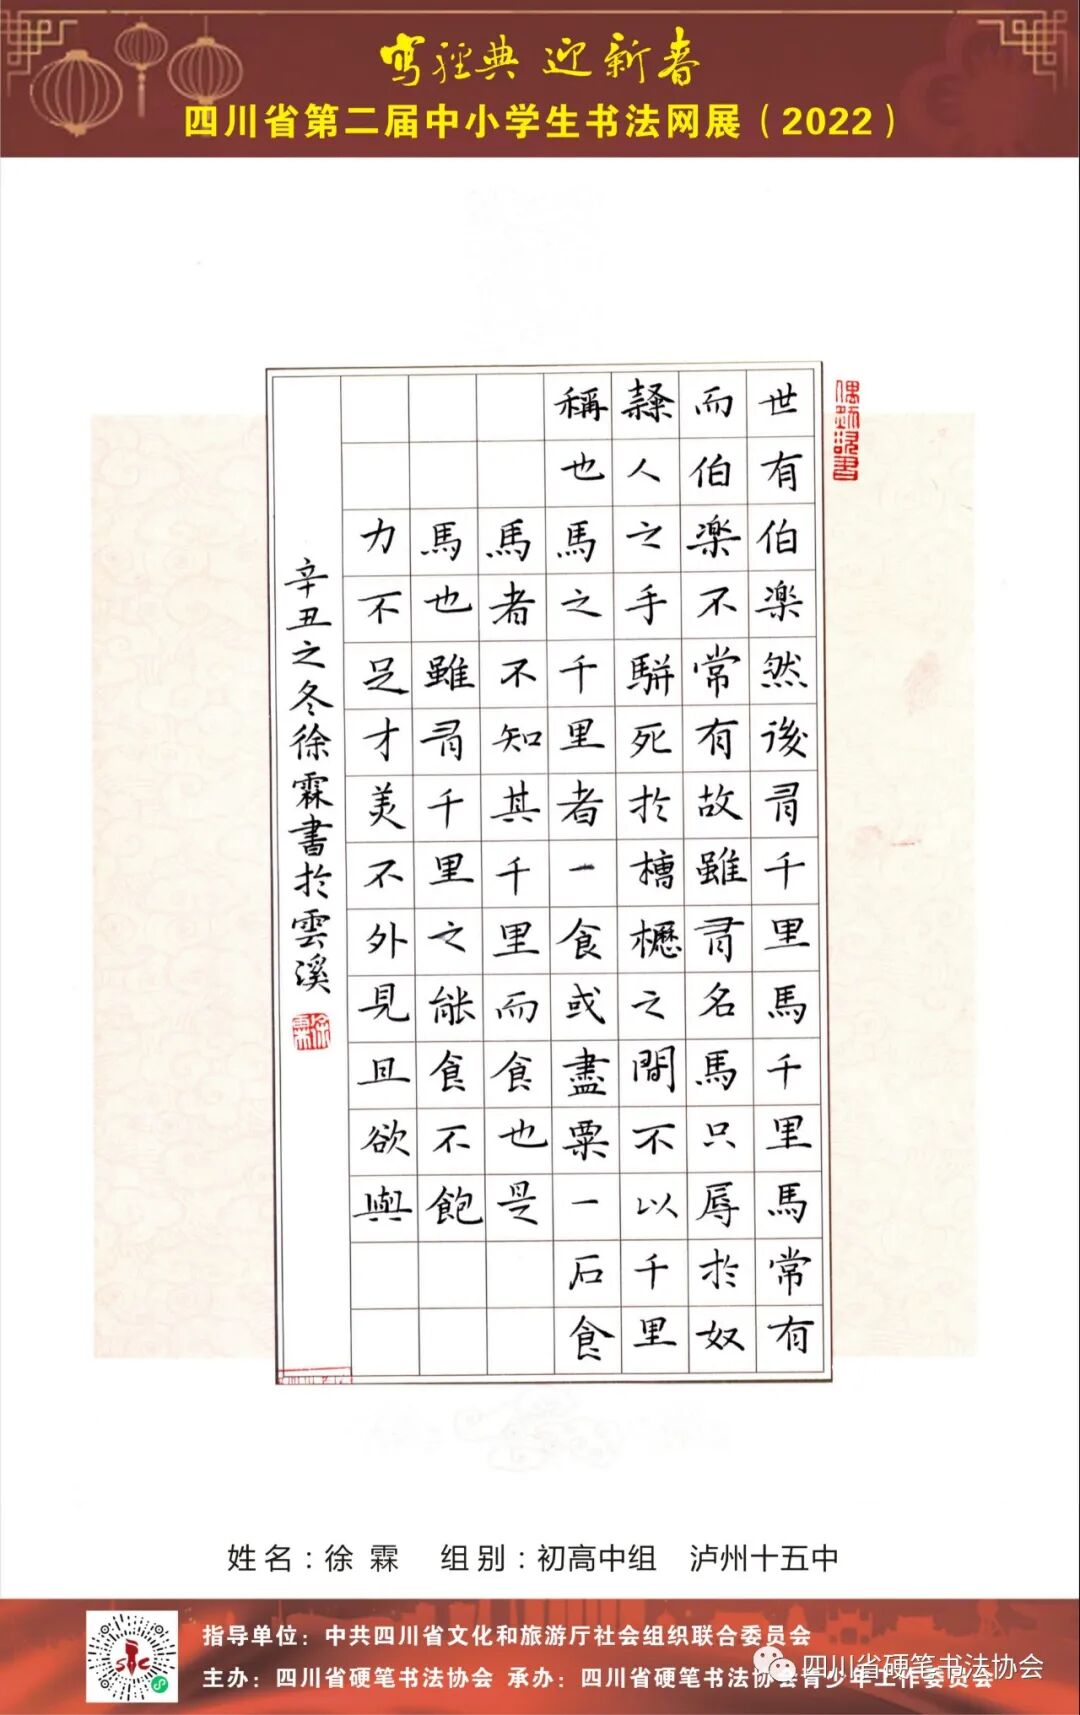 写经典 迎新春
四川省第二届中小学生书法网展（2022）
世有伯樂然後有千里馬千里馬常有
而伯樂不常有故雖有名馬只辱於奴
隸人之手駢死於槽櫪之間不以千里
稱也馬之千里者一食或盡粟一石食
馬者不知其千里而食也是
馬也雖有千里之能食不飽
力不足才美不外見且欲與
辛丑之冬徐霖書於雲溪
徐霖
姓名：徐 霖 组别：初高中组 泸州十五中
指导单位：中共四川省文化和旅游厅社会组织联合委员会
主办：四川省硬笔书法协会 承办：四川省硬笔书法协会青少年工作委员会
四川省硬笔书法协会